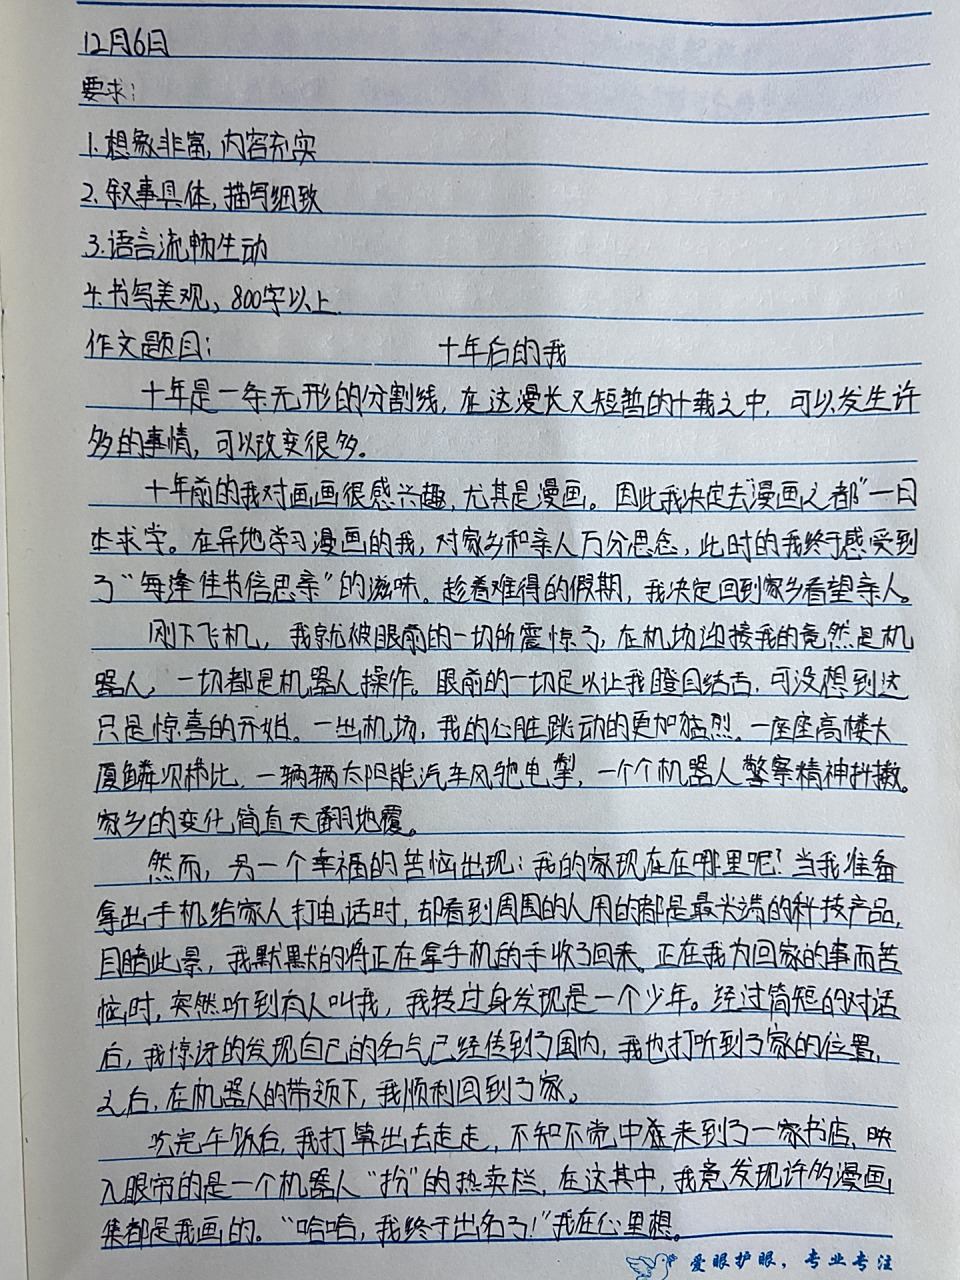 12月6日
要求：
1.想象非富，内容充实
2.叙事具体，描写细致
3.语言流畅生动
4.书写美观，800字以上.
作文题目：　　　　　十年后的我
十年是一条无形的分割线，在这漫长又短暂的十载之中，可以发生许
多的事情，可以改变很多。
十年前的我对画画很感兴趣，尤其是漫画。因此我决定去“漫画之都”一日
本求学。在异地学习漫画的我，对家乡和亲人万分思念，此时的我终于感受到
了“每逢佳节倍思亲”的滋味。趁着难得的假期，我决定回到家乡看望亲人。
刚下飞机，我就被眼前的一切所震惊了，在机场迎接我的竟然是机
器人，一切都是机器人操作。眼前的一切足以让我瞪目结舌，可没想到这
只是惊喜的开始。一出机场，我的心脏跳动的更加猛烈。一座座高楼大
厦鳞次栉比，一辆辆太阳能汽车风驰电掣，一个个机器人警察精神抖擞。
家乡的变化简直天翻地覆。
然而，另一个幸福的苦恼出现：我的家现在在哪里呢？当我准备
拿出手机给家人打电话时，却看到周围的人用的都是最尖端的科技产品，
目睹此景，我默默的将正在拿手机的手收了回来。正在我为回家的事而苦
恼时，突然听到有人叫我，我转过身发现是一个少年。经过简短的对话
后，我惊讶的发现自己的名气已经传到了国内，我也打听到了家的位置，
之后，在机器人的带领下，我顺利回到了家。
吃完午饭后，我打算出去走走，不知不觉中逛来到了一家书店，映
入眼帘的是一个机器人“扮”的热卖栏，在这其中，我竟发现许多漫画
集都是我画的。“哈哈，我终于出名了！”我在心里想。
爱眼护眼，专业专注